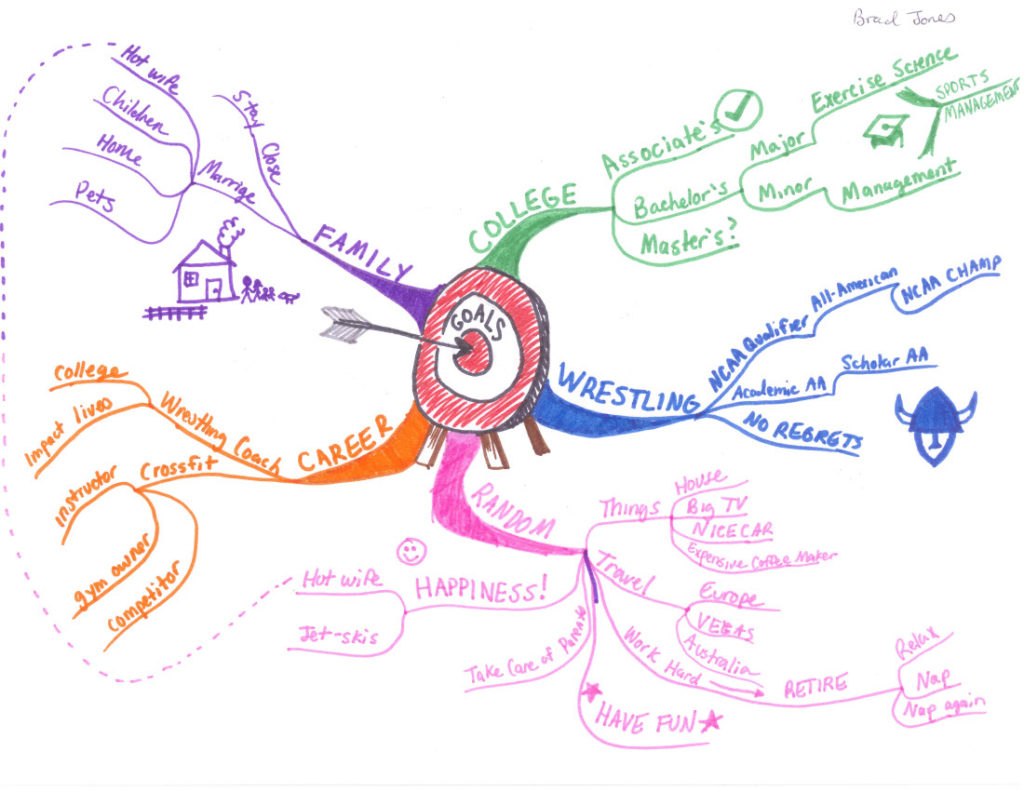 Brad Jones
GOALS
FAMILY
Stay Close
Marrige
Hot wife
Children
Home
Pets
COLLEGE
Associate's
Bachelor's
Major
Exercise Science
SPORTS
MANAGEMENT
Minor
Management
Master's?
WRESTLING
NCAA Qualifier
All-American
NCAA CHAMP
Academic AA
Scholar AA
NO REGRETS
CAREER
Wrestling Coach
College
Impact lives
Crossfit
instructor
gym owner
competitor
RANDOM
Things
House
Big TV
NICE CAR
Expensive Coffee Maker
Travel
Europe
VEGAS
Australia
Work Hard
RETIRE
Relax
Nap
Nap again
HAVE FUN
Take Care of Parents
HAPPINESS!
Hot wife
Jet-skis